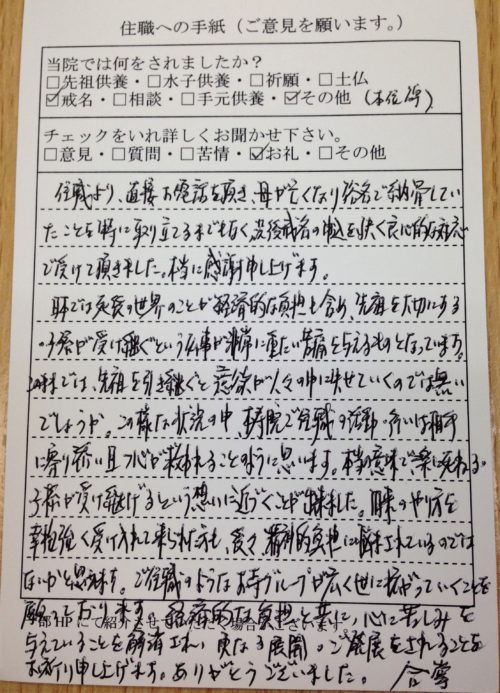 住職への手紙（ご意見を願います。）
当院では何をされましたか？
□先祖供養・□水子供養・□祈願・□土仏
☑戒名・□相談・□手元供養・☑その他（本位牌）
チェックをいれ詳しくお聞かせ下さい。
□意見・□質問・□苦情・☑お礼・□その他
住職より、直接お電話を頂き、母が亡くなり俗名で納骨してい
たことを特に取り立てるでもなく、没後戒名の申込を快く良心的な対応
で受けて頂きました。本当に感謝申し上げます。
日本では死後の世界のことが経済的な負担も含め、先祖を大切にする
子孫が受け継ぐという大事が非常に重たい苦痛を与えるものとなっています。
この様では、先祖を引き継ぐと意識が人々の中に失せていくのでは無い
でしょうか。この様な状況の中、寺院ご住職の活動・行いは相手
に寄り添い且つ心が救われることのように思います。本当の意味で
子孫が受け継げるという想いに近づくことが出来ました。旧来のやり方を
辛抱強く受け入れて来られた方も、金銭的負担に悩まされているのでは
ないかと思います。ご住職のようなお寺グループが広く世に拡がっていくことを
願っております。経済的な負担と共に、心に苦しみを
与えていることを解消され、更なる展開、ご発展をされることを
お祈り申し上げます。ありがとうございました。 合掌